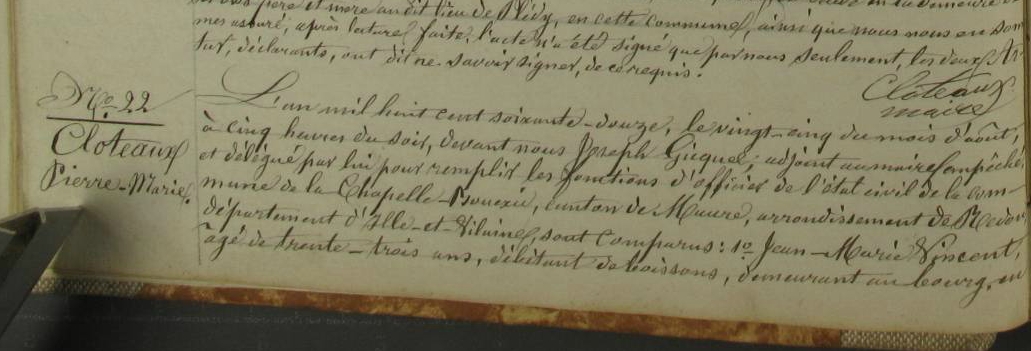 père et mere au dit lieu de Plécy, en cette commune, ainsi que nous nous en som
mes assuré, après lecture faite, l'acte n'a été signé que par nous seulement, les deux
tur, déclarants, ont dit ne savoir signer, de ce requis.
Cloteaux
maire
No. 22
Cloteaux
Pierre-Marie.
L'an mil huit cent soixante-douze, le vingt-cinq du mois d'août,
à cinq heures du soir, devant nous Joseph Gicquel, adjoint au maire empêché
et délégué par lui pour remplir les fonctions d'officier de l'état civil de la com-
mune de la Chapelle-Bouexic, canton de Maure, arrondissement de Redon,
département d'Ille-et-Vilaine, sont comparus: 1o Jean-Marie Vincent,
âgé de trente-trois ans, débitant de boissons, demeurant au bourg, en